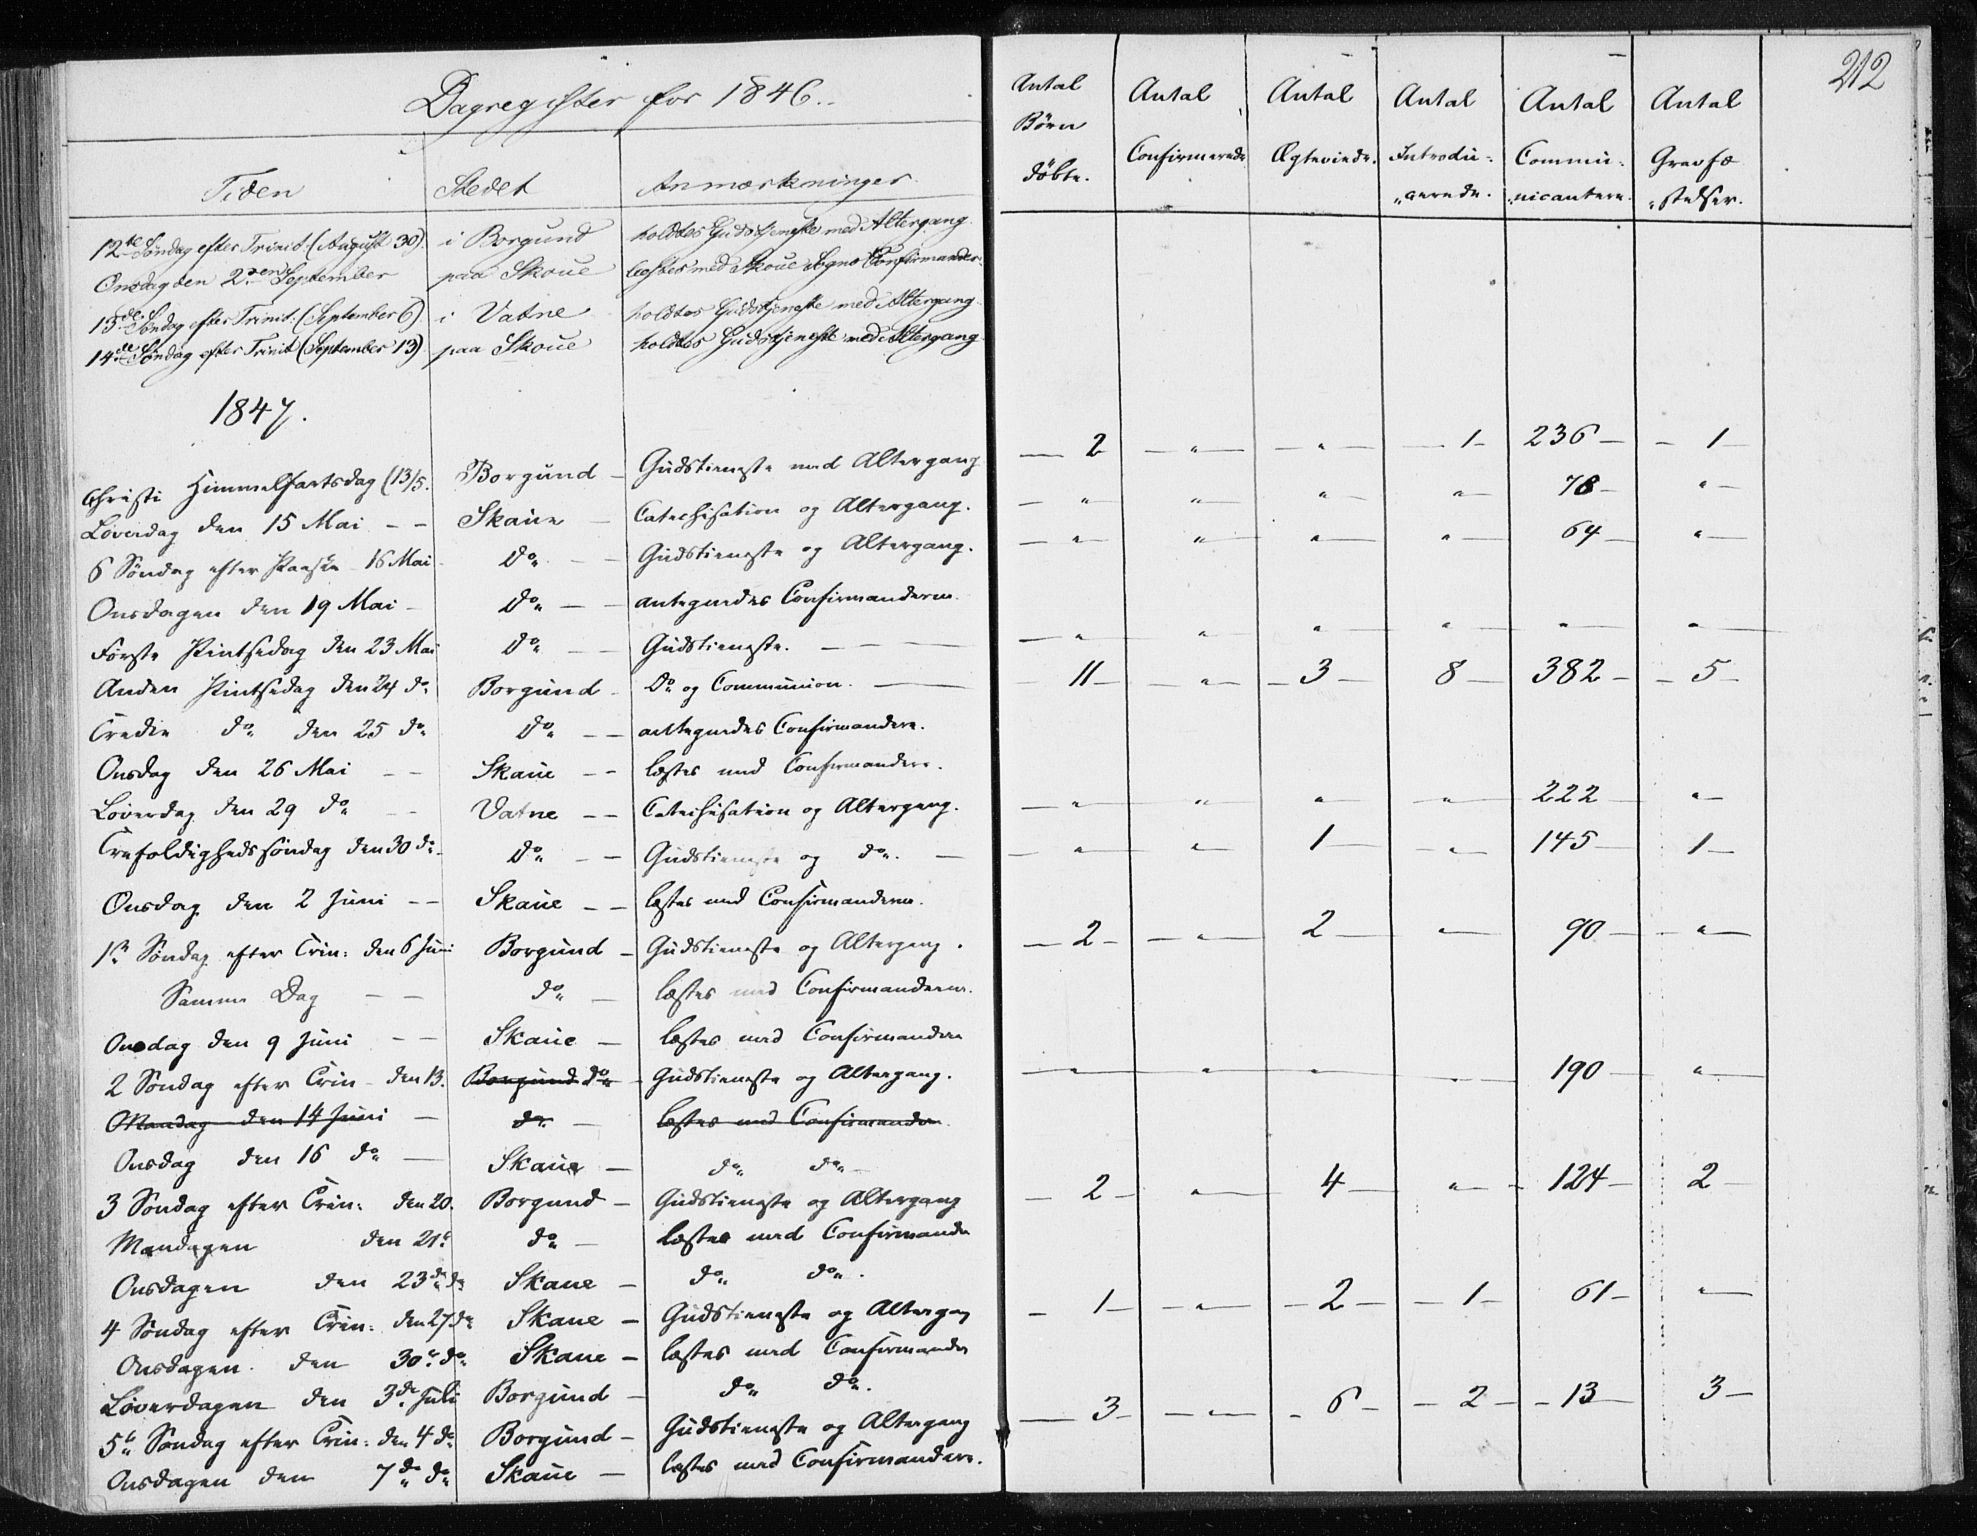 Dagregister for 1846.
212
Tiden Stedet Anmærkninger Antal Børn døbte. Antal Confirmerede Antal Ægteviede. Antal Introdu-cerede. Antal Communicantere. Antal Gravfæstelser.
12te Søndag efter Trinit. (August 30). i Borgund holdtes Gudstjeneste med Altergang.
Onsdag den 2den September paa Skoue læstes med Skoue Sogns Confirmander.
13de Søndag efter Trinit: (September 6) i Vatne holdtes Gudstjeneste med Altergang
14de Søndag efter Trinit (September 13) paa Skoue holdtes Gudstjeneste med Altergang
1847.
Christi Himmelfartsdag (13/5. Borgund – Gudstieneste med Altergang – 2 – „ – – „ – – 1 – 236 – – 1 –
Løverdag den 15 Mai – – Skaue – Catechisation og Altergang. – „ – „ „ „ 78 – „ –
6 Søndag efter Paaske 16 Mai do – – Gudstieneste og Altergang. – „ – „ „ „ 64 – „ –
Onsdagen den 19 Mai – do – – antegnedes Confirmanderne.
Første Pintsedag den 23 Mai do – – Gudstieneste. – – – „ – „ „ „ – „ – – „ –
Anden Pintsedag den 24 do Borgund – do og Communion. – – 11 – – „ – – 3 – 8 – 382 – – 5 –
Tredie do den 25 do do – – anteqnedes Confirmandere.
Onsdag den 26 Mai – – Skaue – – læstes med Confirmandere.
Løverdag den 29 do – – Vatne – – Catechisation og Altergang. – „ – „ – „ – – „ – 222 „ –
Trefoldighedssøndag den 30 do – do – – Gudstieneste og do. – – „ – „ – 1 – – „ – 145 – 1 –
Onsdag den 2 Juni – – Skaue – – læstes med Confirmanderne.
1ste Søndag efter Trin: den 6 Juni Borgund – Gudstieneste og Altergang. – 2 – – „ – 2 – „ – 90 – – „ –
Samme Dag – – do – læstes med Confirmanderne.
Onsdag den 9 Juni – – Skaue – læstes med Confirmandere
2 Søndag efter Trin – den 13. Borgund do – Gudstieneste og Altergang. – „ – – „ – – „ – – „ – 190 – „ –
Mandag den 14 Juni – do – læstes med Confirmander.
Onsdag den 16 do – Skaue – do do –
3 Søndag efter Trin: den 20. Borgund – Gudstieneste og Altergang – 2 – „ – 4 – „ – – 124 – 2 –
Mandagen den 21de do – læstes med Confirmander
Onsdagen den 23de do Skaue – do do.
4 Søndag efter Trin: den 27 do Skaue – Gudstieneste og Altergang – 1 – – „ – – 2 – – 1 – 61 – „ –
Onsdagen den 30te do Skaue – læstes med Confirmander
Løverdagen den 3de Juli Borgund – do do.
5te Søndag efter Trin: den 4 do Borgund – Gudstieneste og Altergang – 3 – – „ – – 6 – – 2 – – 13 – 3 –
Onsdagen den 7de do Skaue – læstes med Confirmandere.